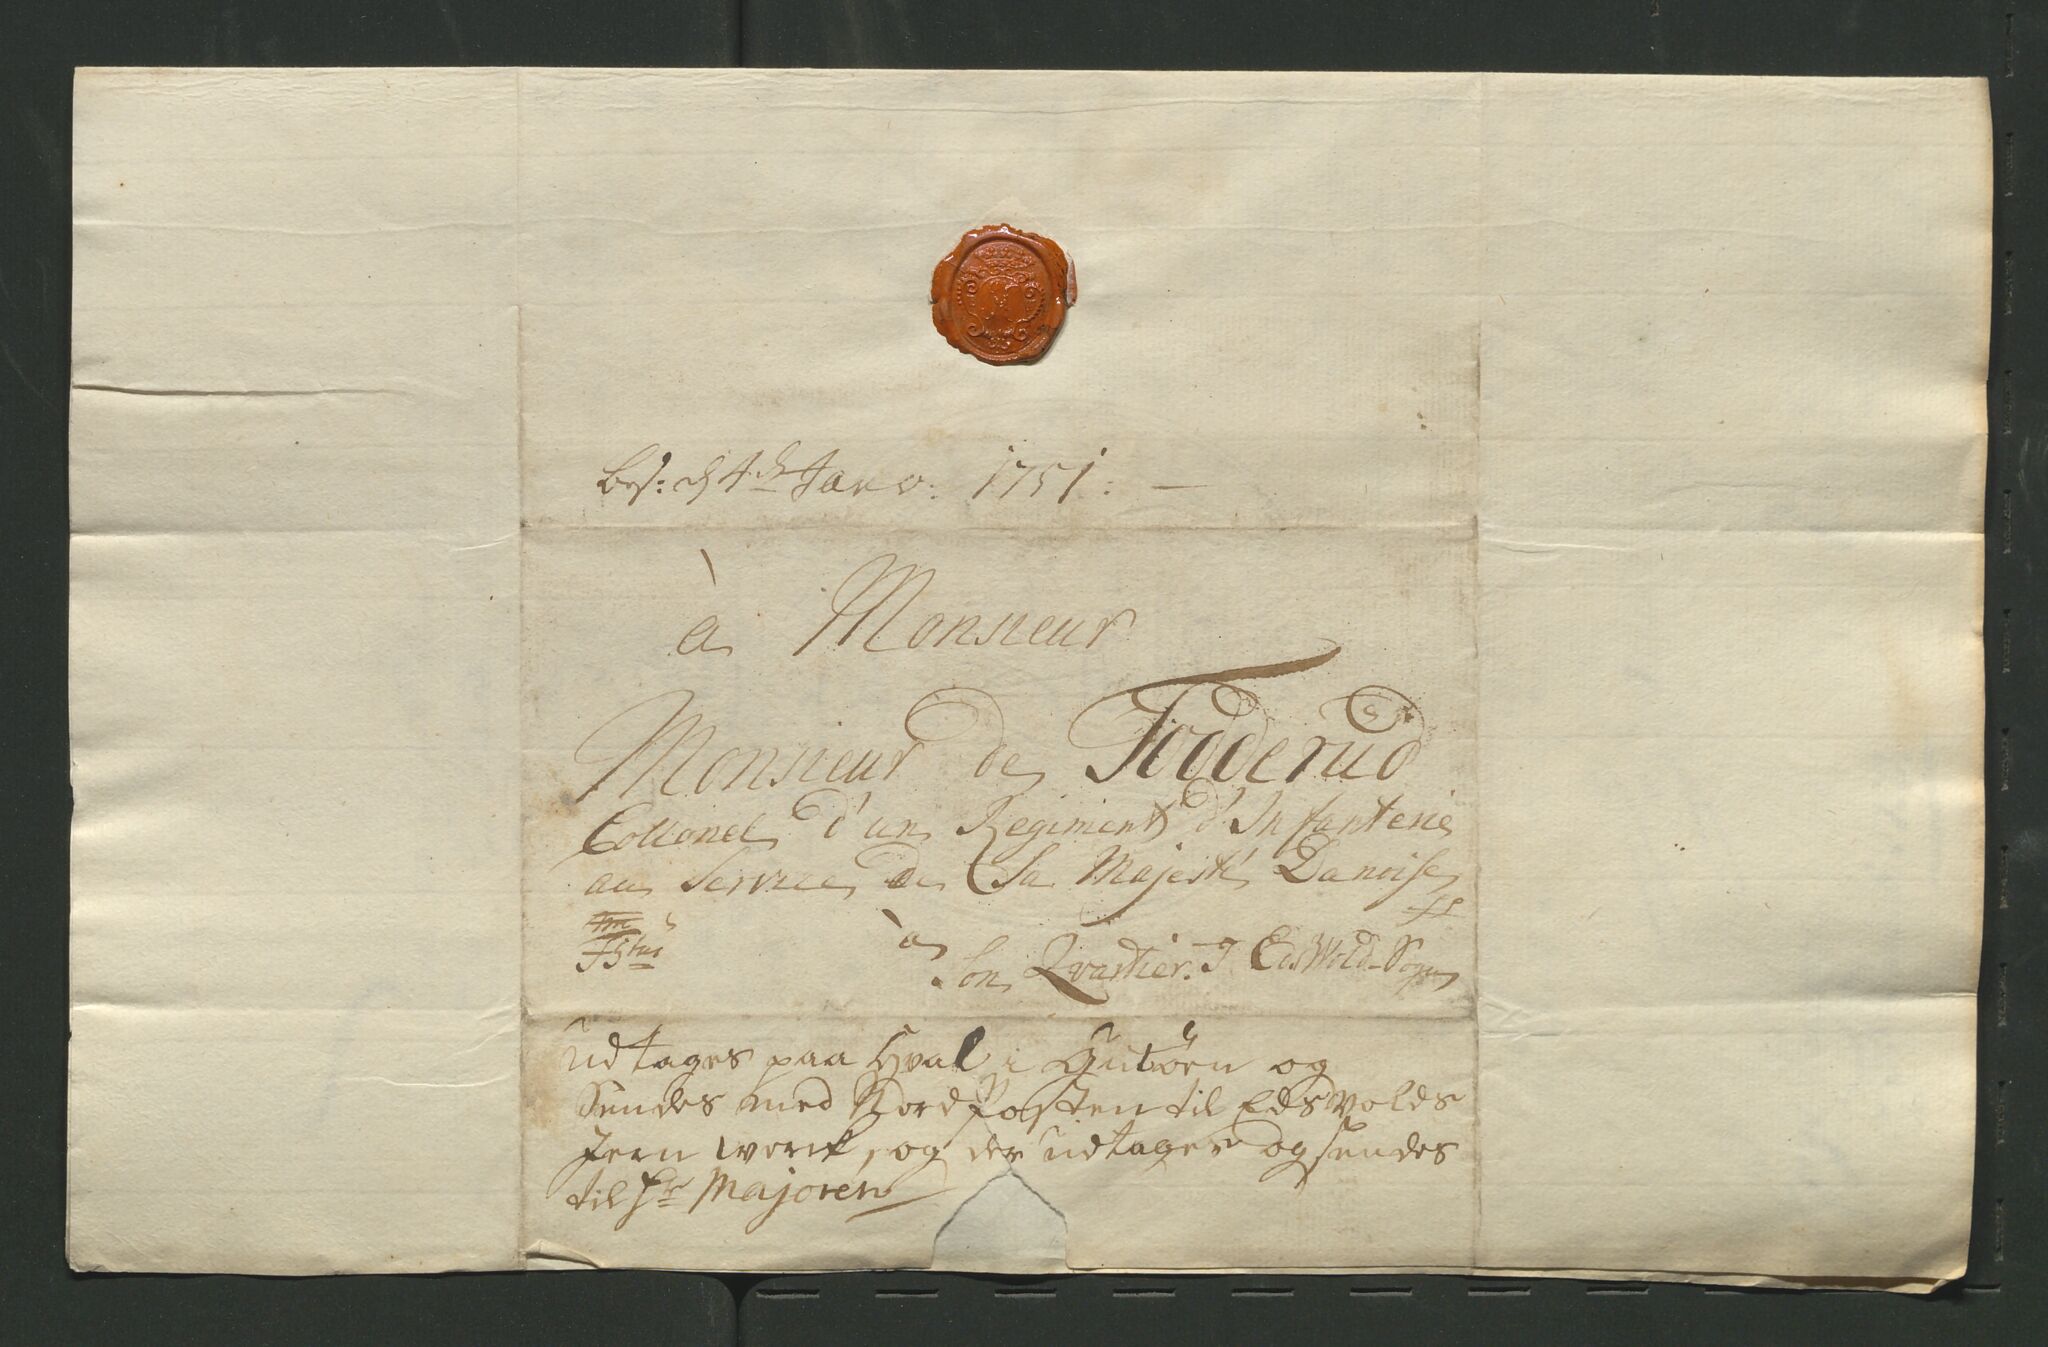 Bes: d 4de Janv: 1751: —
à Monsieur
Monsieur de Todderud
Collonel d'un Regiment d'Infanterie
au Service de Sa Majesté Danoise
à
Son Qvartier. I EdsWold-Sogn
udtages paa Hval i og
Sendes med Nord Posten til Edsvolds
Jern werck, og der udtages og sendes
til Hr Majoren